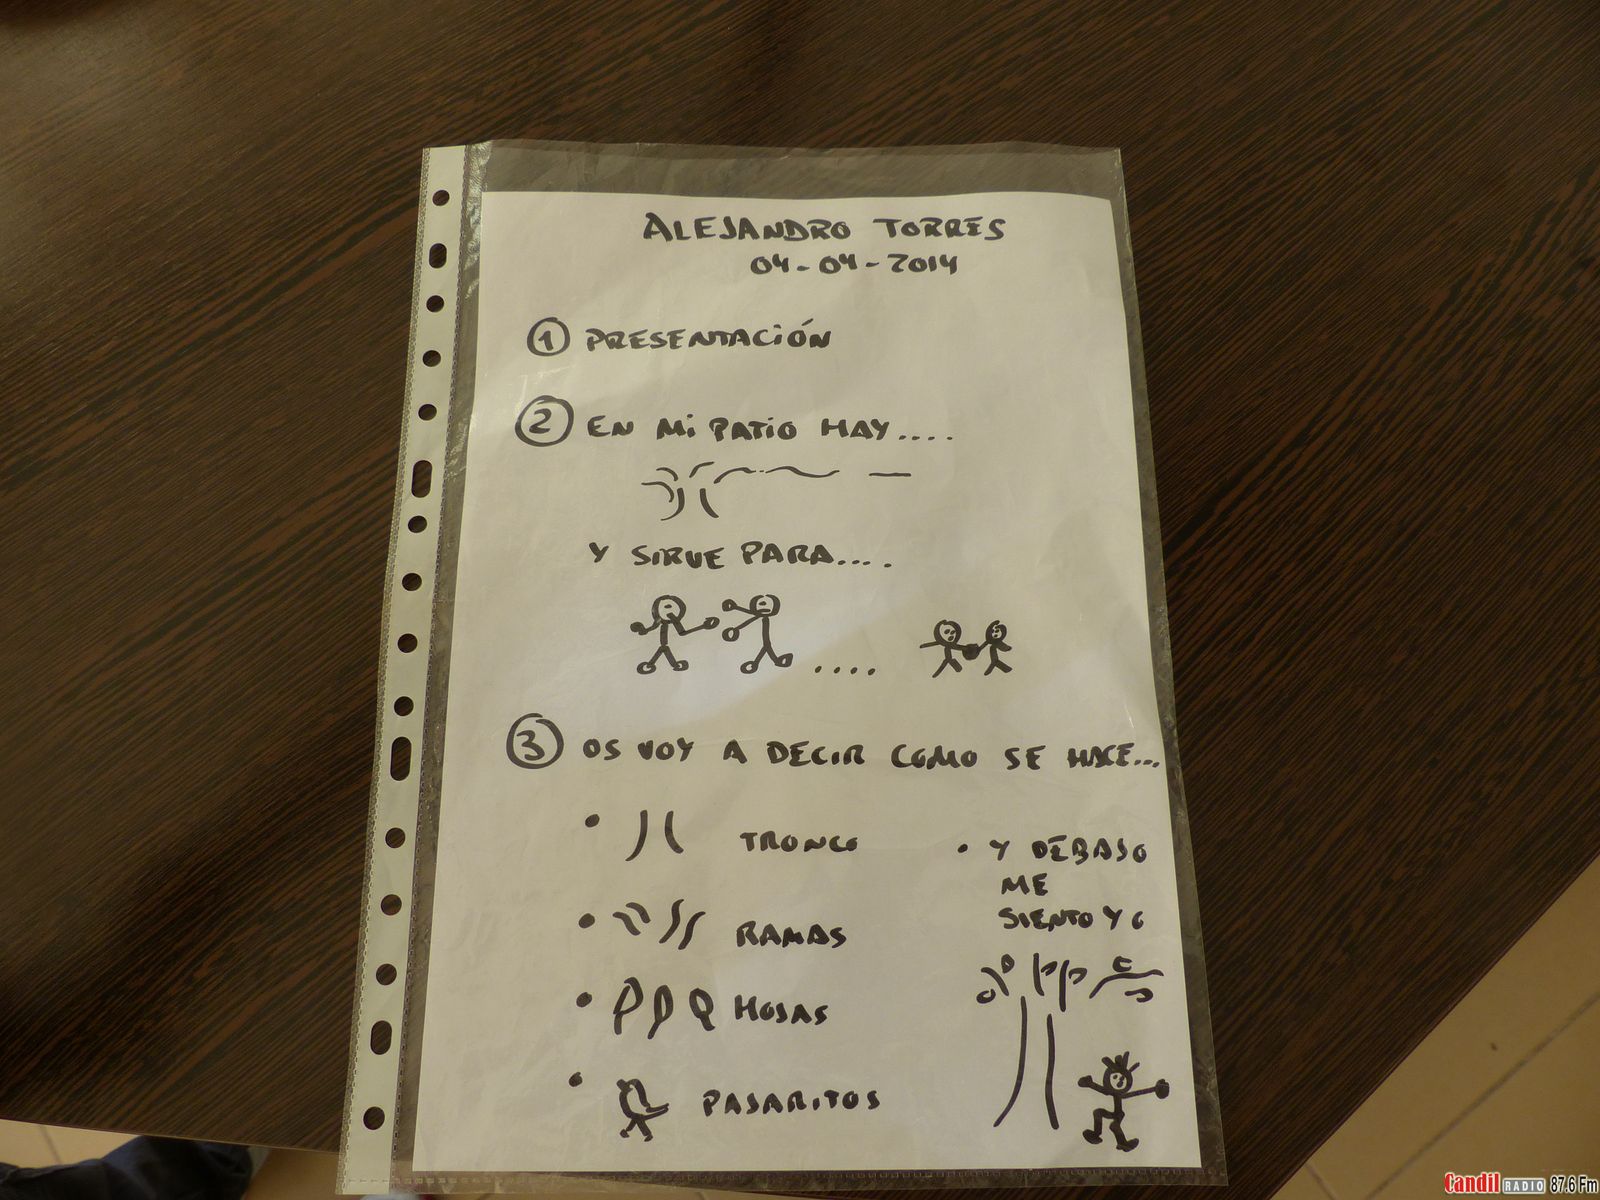 ALEJANDRO TORRES
04-04-2014
1 PRESENTACIÓN
2 EN Mi PATiO HAY....
Y SIRVE PARA....
....
3 OS VOY A DECIR COMO SE HACE...
• TRONCO
• RAMAS
• HOJAS
• PAJARITOS
• Y DEBAJO
ME
SIENTO YO
Candil RADIO 87.6 Fm